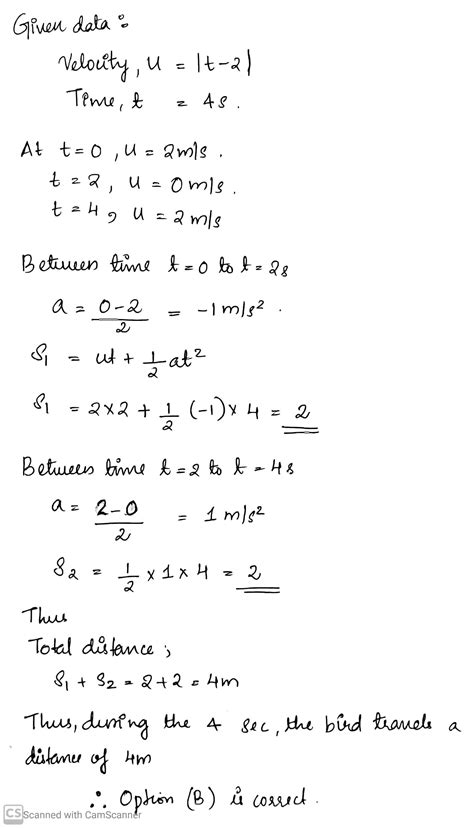 Given data :
Velocity, u = |t-2|
Time, t = 4s.
At t=0, u = 2m/s.
t = 2, u = 0 m/s.
t = 4, u = 2 m/s
Between time t=0 to t=2s
a = 0-2/2 = -1 m/s² .
S₁ = ut + 1/2 at²
S₁ = 2×2 + 1/2 (-1)× 4 = 2
Between time t=2 to t=4s
a = 2-0/2 = 1 m/s²
S₂ = 1/2 × 1 × 4 = 2
Thus
Total distance ;
S₁ + S₂ = 2+2 = 4m
Thus, during the 4 sec, the bird travels a
distance of 4m
∴ Option (B) is correct.
CS Scanned with CamScanner